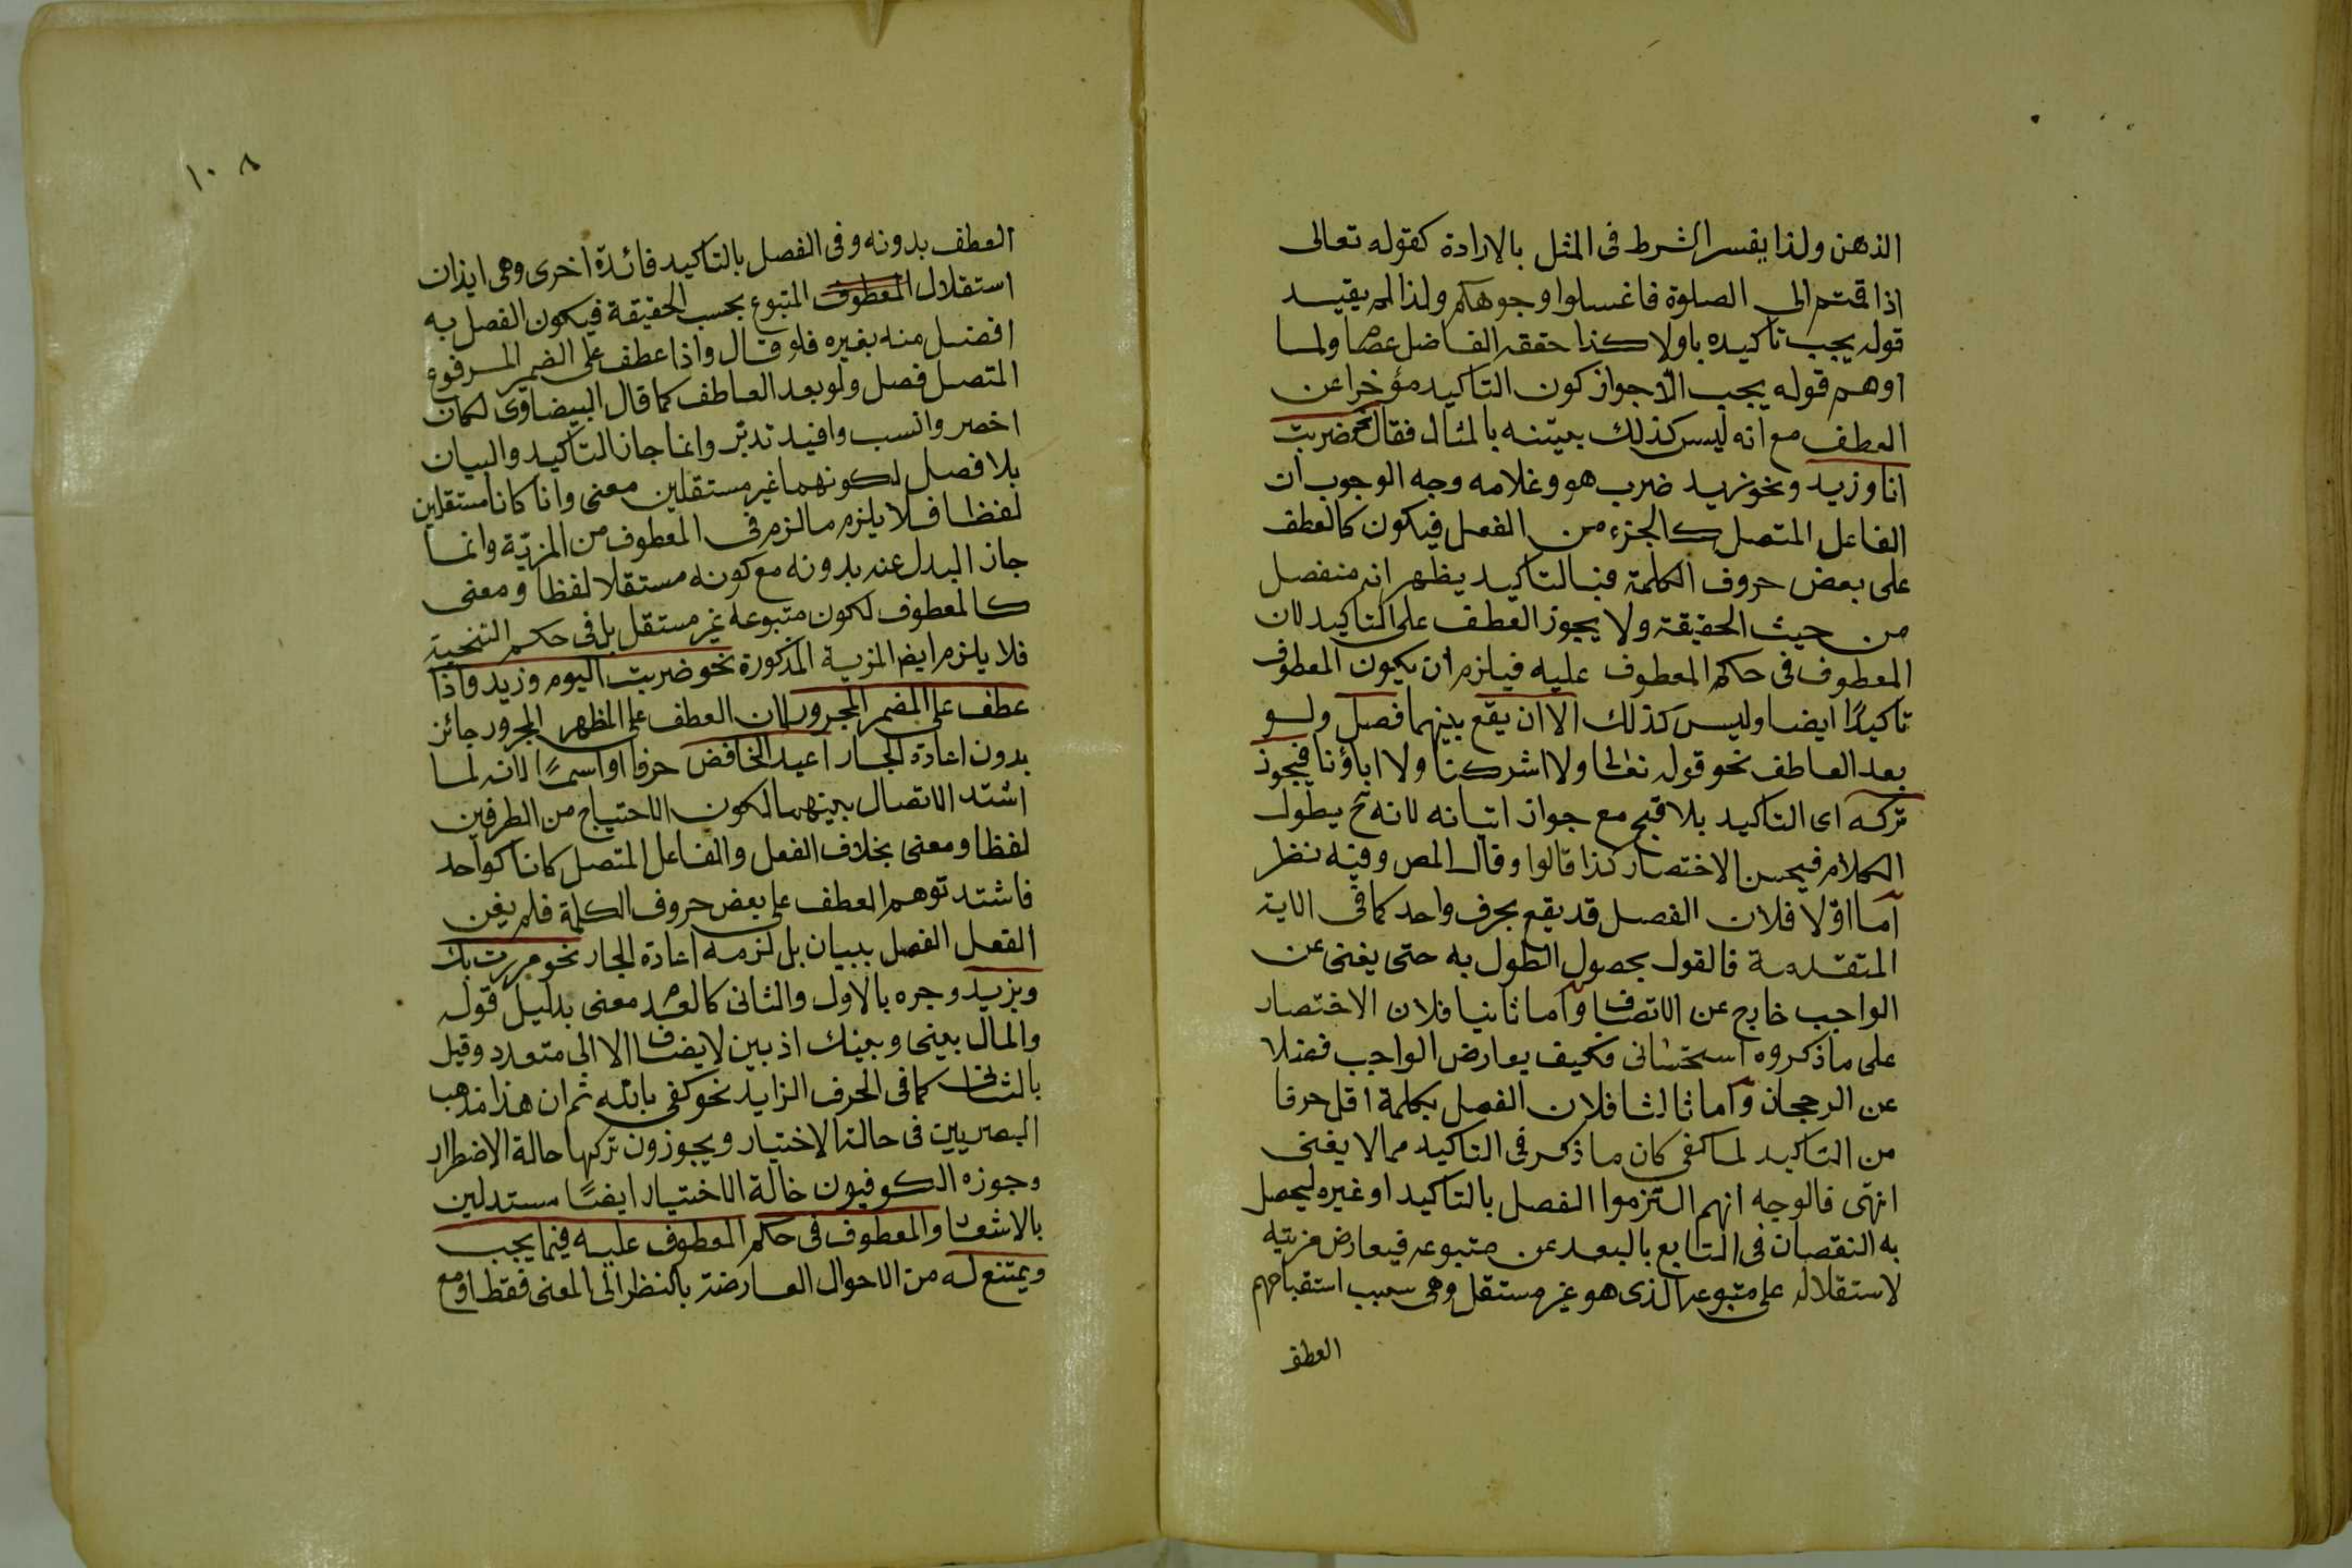 الذهن ولذا يفسر الشرط فى المثل بالارادة كقوله تعالى
اذا قمتم الى الصلوة فاغسلوا وجوهكم ولذا لم يقيد
قوله يجب تاكيده باولا كذا حققه الفاضل عصا ولما
اوهم قوله يجب الاجواز كون التاكيد مؤخرا عن
العطف مع انه ليس كذلك بيّنه بالمثال فقال نحو ضربت
انا وزيد ونحو زيد ضرب هو وغلامه وجه الوجوب ان
الفاعل المتصل كالجزء من الفعل فيكون كالعطف
على بعض حروف الكلمة فبالتاكيد يظهر انه منفصل
من حيث الحقيقة ولا يجوز العطف على التاكيد لان
المعطوف فى حكم المعطوف عليه فيلزم ان يكون المعطوف
تاكيدًا ايضا وليس كذلك الا ان يقع بينهما فصل ولو
بعد العاطف نحو قوله تعالى ولا اشركنا ولا اباؤنا فيجوز
تركه اى التاكيد بلا قبح مع جواز اتيانه لانه ح يطول
الكلام فيحسن الاختصار كذا قالوا وقال المص وفيه نظر
اما اوّلا فلان الفصل قد يقع بحرف واحد كما فى الاية
المتقدمة فالقول بحصول الطول به حتى يغنى عن
الواجب خارج عن الانصاف واما ثانيا فلان الاختصار
على ما ذكروه استحسانى فكيف يعارض الواجب فضلا
عن الرجحان واما ثالثا فلان الفصل بكلمة اقل حرفا
من التاكيد لما كفى كان ما ذكر فى التاكيد مما لا يغنى
انتهى فالوجه انهم التزموا الفصل بالتاكيد او غيره ليحصل
به النقصان فى التابع بالبعد عن متبوعه فيعارض مزيته
لاستقلاله على متبوعه الذى هو غير مستقل وهى سبب استقباحهم
العطف
١٠٨
العطف بدونه وفى الفصل بالتاكيد فائدة اخرى وهى ايذان
استقلال المعطوف المتبوع بحسب الحقيقة فيكون الفصل به
افضل منه بغيره فلو قال واذا عطف على الضمير المرفوع
المتصل فصل ولو بعد العاطف كما قال البيضاوى لكان
اخصر وانسب وافيد تدبّر وانما جاز التاكيد والبيان
بلا فصل لكونهما غير مستقلين معنى وان كانا مستقلين
لفظا فلا يلزم ما لزم فى المعطوف من المزيّة وانما
جاز البدل عنه بدونه مع كونه مستقلا لفظا ومعنى
كالمعطوف لكون متبوعه غير مستقل بل فى حكم التنحية
فلا يلزم ايض المزية المذكورة نحو ضربت اليوم وزيد واذا
عطف على المضمر المجرور لان العطف على المظهر المجرور جائز
بدون اعادة الجار اعيد الخافض حرفا او اسمًا لانه لما
اشتد الاتصال بينهما لكون الاحتياج من الطرفين
لفظا ومعنى بخلاف الفعل والفاعل المتصل كانا كواحد
فاشتد توهم العطف على بعض حروف الكلمة فلم يغن
الفعل الفصل ببيان بل لزمه اعادة الجار نحو مررت بك
وبزيد وجره بالاول والثانى كالعدم معنى بدليل قوله
والمال بينى وبينك اذ بين لا يضاف الا الى متعدد وقيل
بالثانى كما فى الحرف الزايد نحو كفى بالله ثم ان هذا مذهب
البصريين فى حالة الاختيار ويجوزون تركها حالة الاضطرار
وجوزه الكوفيون حالة الاختيار ايضًا مستدلين
بالاشعار والمعطوف فى حكم المعطوف عليه فيما يجب
ويمتنع له من الاحوال العارضة بالنظر الى المعنى فقط او مع